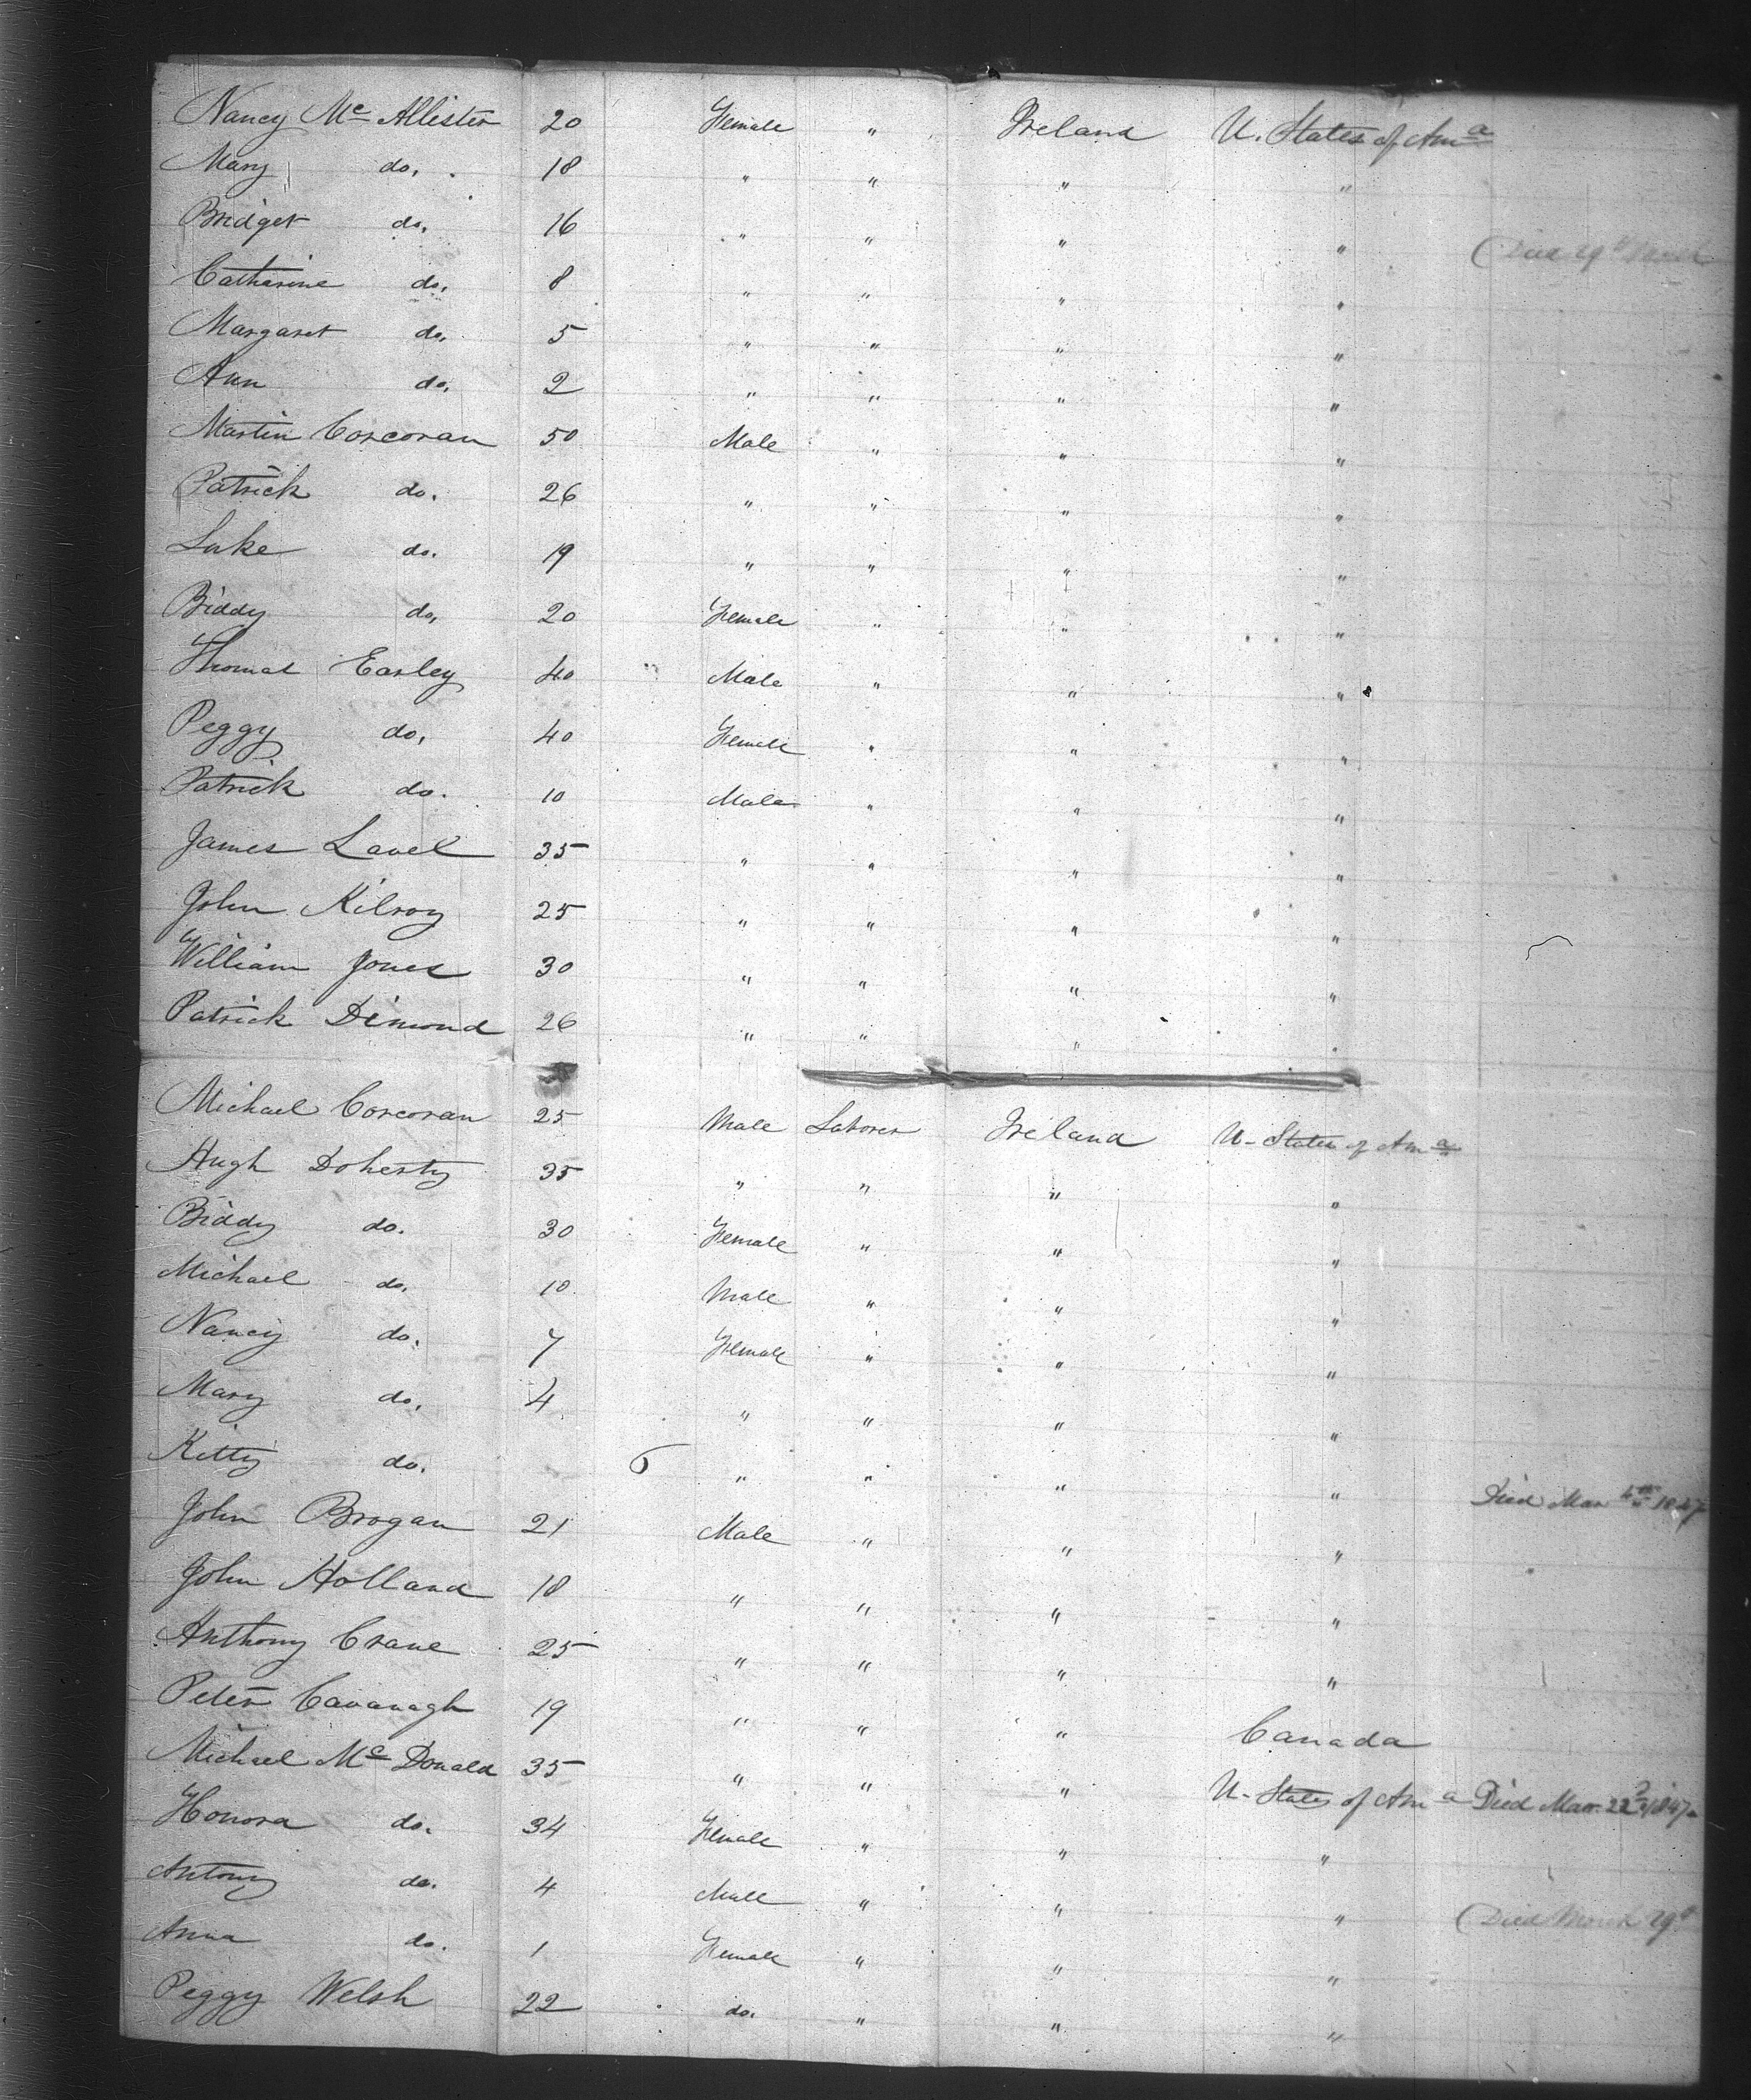 Nancy McAllister 20 Female " Ireland U. States of Ama
Mary do. 18 " " " "
Bridget do. 16 " " " " Died 29th March
Catharine do. 8 " " " "
Margaret do. 5 " " " "
Ann do. 2 " " " "
Martin Corcoran 50 Male " " "
Patrick do. 26 " " " "
Luke do. 19 " " " "
Biddy do. 20 Female " " "
Thomas Earley 40 " Male " " "
Peggy do. 40 Female " " "
Patrick do. 10 Male " " "
James Lavel 35 " " " "
John Kilroy 25 " " " "
William Jones 30 " " " "
Patrick Dimond 26 " " " "
Michael Corcoran 25 Male Laborer Ireland U-States of Ama
Hugh Doherty 35 " " " "
Biddy do. 30 Female " " "
Michael do. 10 Male " " "
Nancy do. 7 Female " " "
Mary do. 4 " " " "
Kitty do. 6 " " " " Died Mar 4th 1847
John Brogan 21 Male " " "
John Holland 18 " " " "
Anthony Crane 25 " " " "
Peter Cavanagh 19 " " " Canada
Michael McDonald 35 " " " U-States of Ama Died Mar. 22d 1847
Honora do. 34 Female " " "
Antony do. 4 Male " " " Died March 29th
Anna do. 1 Female " " "
Peggy Welsh 22 do. " " "